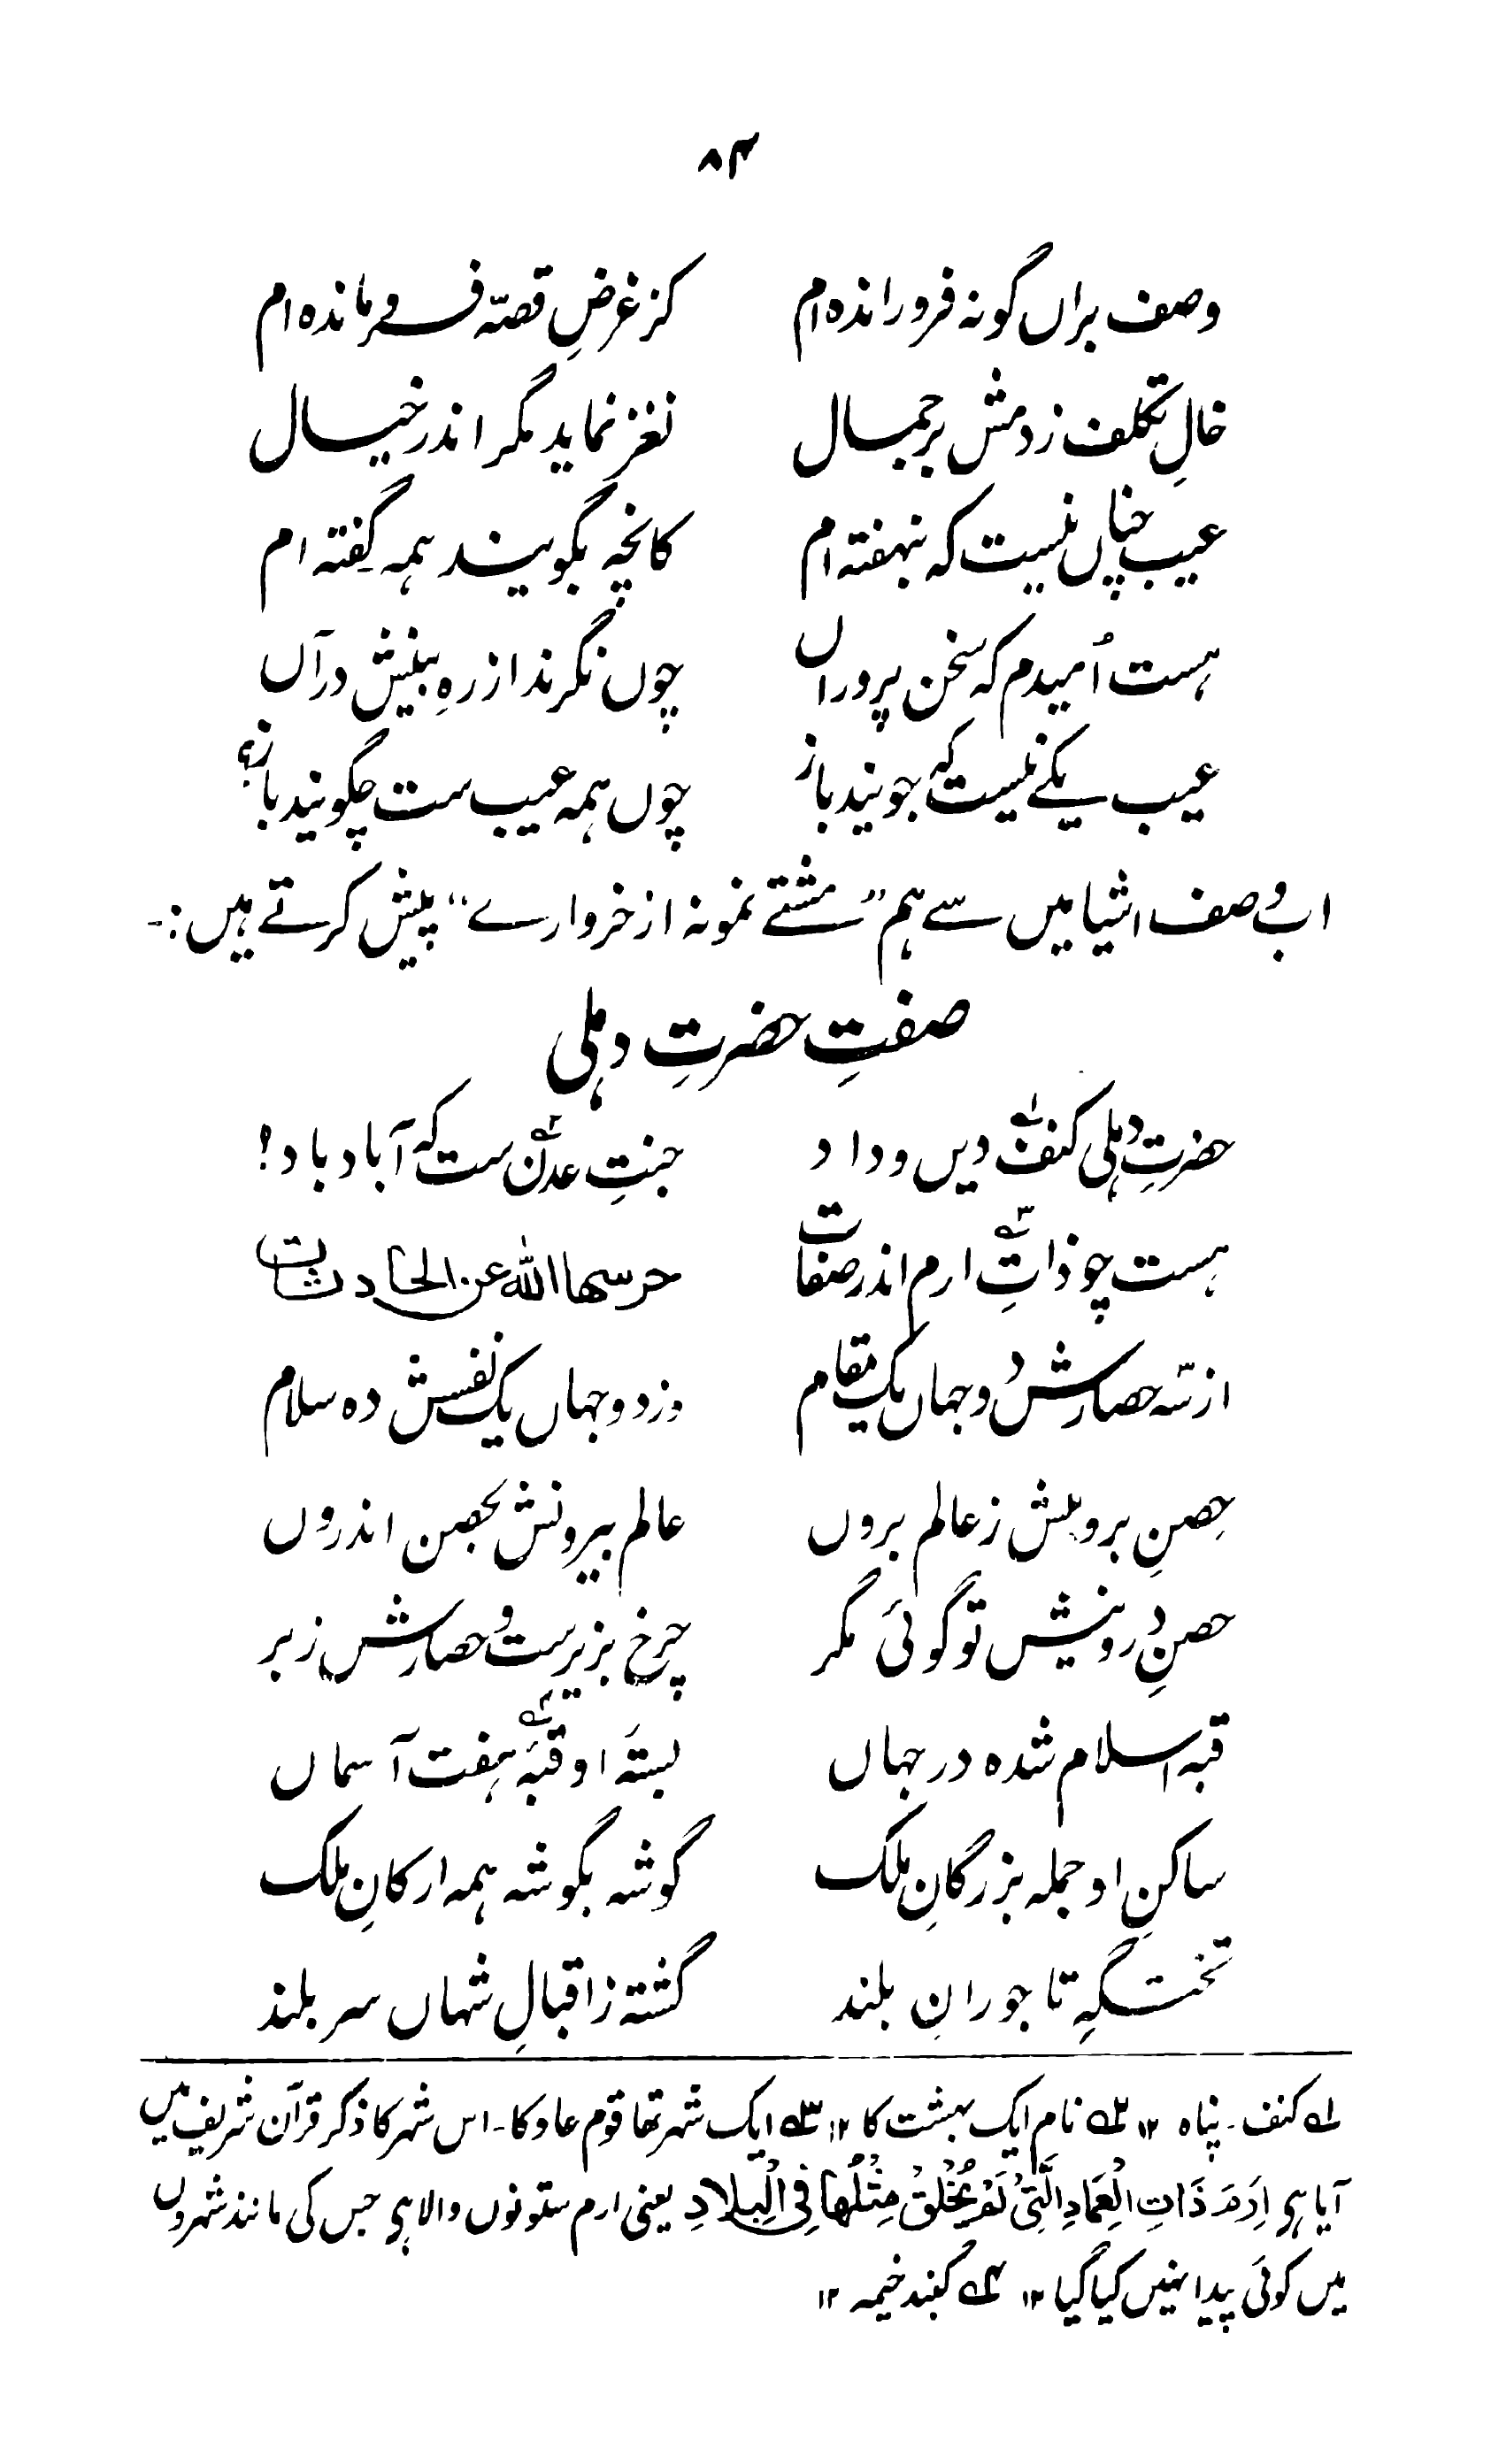 ۸۴
وصف براں گونہ فرو راندہ ام کز غرضِ قصّہ فرو ماندہ ام
خالِ تکلف زدمش بر جمال نغز نماید مگر اندر خیال
عیب چناں نیست کہ بنہفتہ ام کانچہ بگویند ہمہ گفتہ ام
ہست اُمیدم کہ سخن پروراں چوں نگرند از رہِ بینش درآں
عیب یکے نیست کہ جویند باز چوں ہمہ عیب ست چگویند باز؟
اب وصف اشیا میں سے ہم "مشتے نمونہ از خروارے" پیش کرتے ہیں :-
صفتِ حضرتِ دہلی
حضرتِ دہلی کنفِ۱ دیں و داد جنتِ عدن۲ ست کہ آباد باد!
ہست چو ذاتِ۳ ارم اندر صفات حرسھا اللہ عن الحادثات
از سہ حصارش دو جہاں یک مقام وز دو جہاں یک نفسش دہ سلام
حِصنِ برونش ز عالم بروں عالم بیرونش بحصن اندروں
حصنِ درونیش تو گوئی مگر چرخ بزیرست و حصارش زبر
قبہ اسلام شدہ در جہاں بستۂ او قبۂ۴ ہفت آسماں
ساکنِ او جملہ بزرگانِ ملک گوشہ بگوشہ ہمہ ارکانِ ملک
تختگہِ تاجورانِ بلند گشتہ ز اقبالِ شہاں سر بلند
۱ کنف - پناہ ۱۲ ۲ نام ایک بہشت کا ۱۲ ۳ ایک شہر تھا قوم عاد کا - اس شہر کا ذکر قرآن شریف میں
آیا ہی اِرَمَ ذَاتِ الْعِمَادِ الَّتِیْ لَمْ یُخْلَقْ مِثْلُھَا فِی الْبِلَادِ یعنی ارم ستونوں والا ہی جس کی مانند شہروں
میں کوئی پیدا نہیں کیا گیا ۱۲ ۴ گنبد خیمہ ۱۲